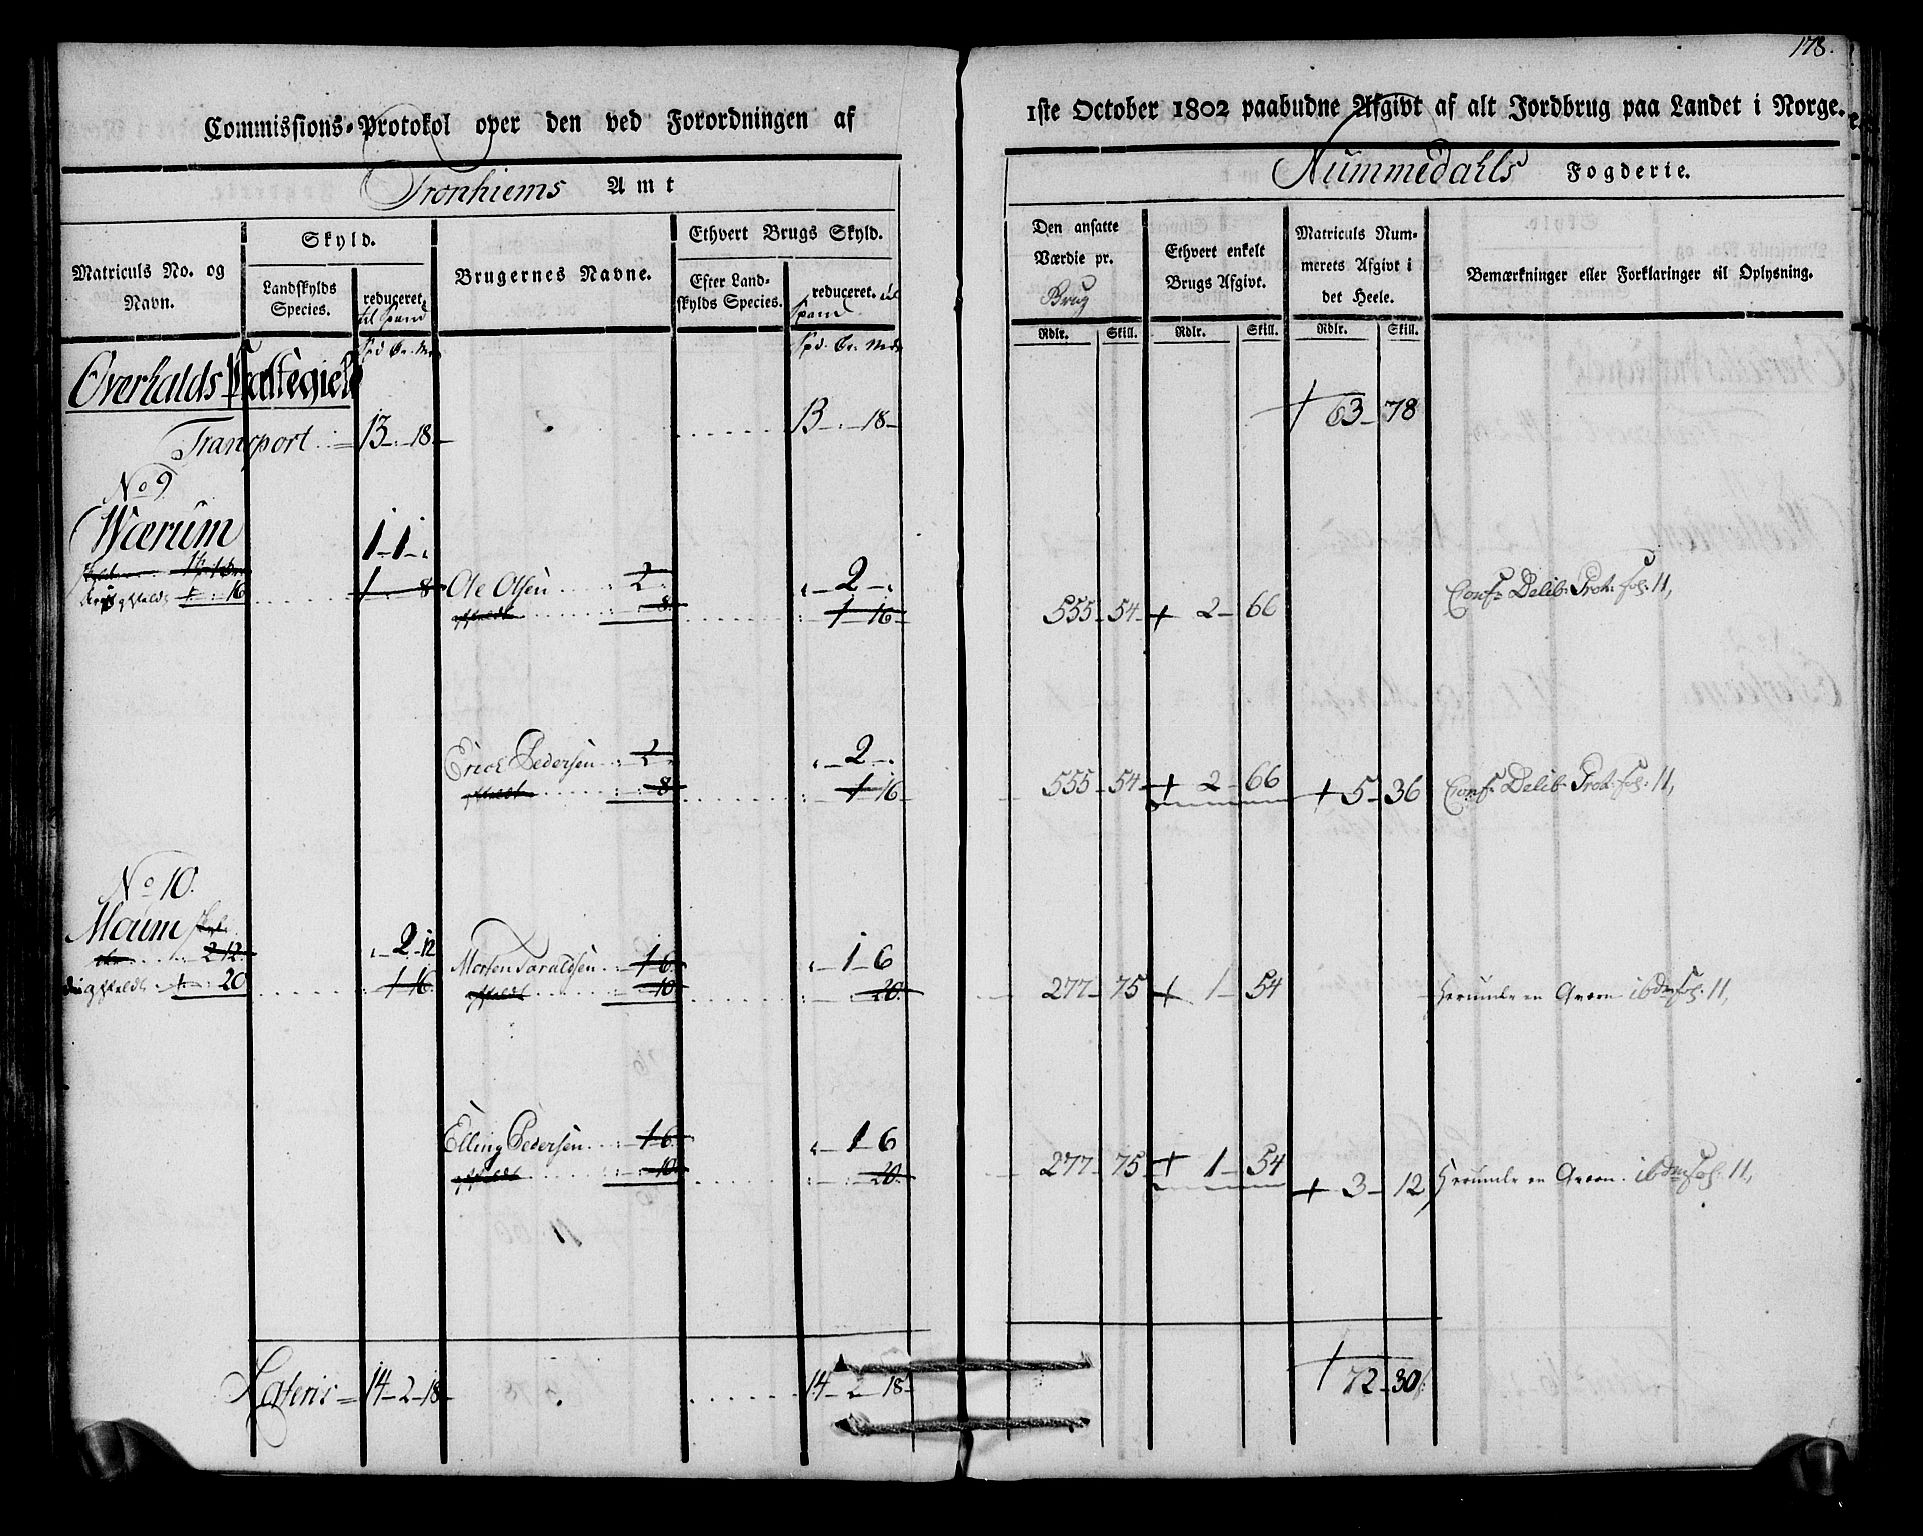 178.
Commissions-Protokol over den ved Forordningen af 1ste October 1802 paabudne Afgivt af alt Jordbrug paa Landet i Norge.
Tronhiems Amt
Nummedahls Fogderie.
Matriculs No. og Navn.
Skyld.
Landskylds Species.
reduceret til Spand
Brugernes Navne.
Ethvert Brugs Skyld.
Efter Landskylds Species.
reduceret til Spand
Den ansatte Værdie pr. Brug
Ethvert enkelt Brugs Afgivt.
Matriculs Nummerets Afgivt i det Heele.
Bemærkninger eller Forklaringer til Oplysning.
Rdlr. Skill. Rdlr. Skill. Rdlr. Skill.
Spd. Ør. Mk
Spd. Ør. Mk
Overhalds Præstegield
Transport 13 - 18 13 - 18 63 - 78
No 9
Wærum 1 - 1 -
1 - 8 Ole Olsen 2 2 -
8 1 16 555 - 54 + 2 - 66 Conf. Delib. Prot. fol. 11,
Erick Pedersen 2 2 -
8 1 16 555 - 54 + 2 - 66 + 5 - 36 Conf. Delib. Prot. fol. 11,
No 10.
Moum 2 - 12
2 12 Morten Taraldsen 1 6 1 - 6
20 1 16 10 20 277 - 75 + 1 - 54 Herunder en Qværn ibdm fol. 11,
Elling Pedersen 1 6 1 6
10 20 277 - 75 + 1 - 54 + 3 - 12 Herunder en Qværn ibdm fol. 11,
Lateris 14 - 2 - 18 14 - 2 - 18 72 - 30